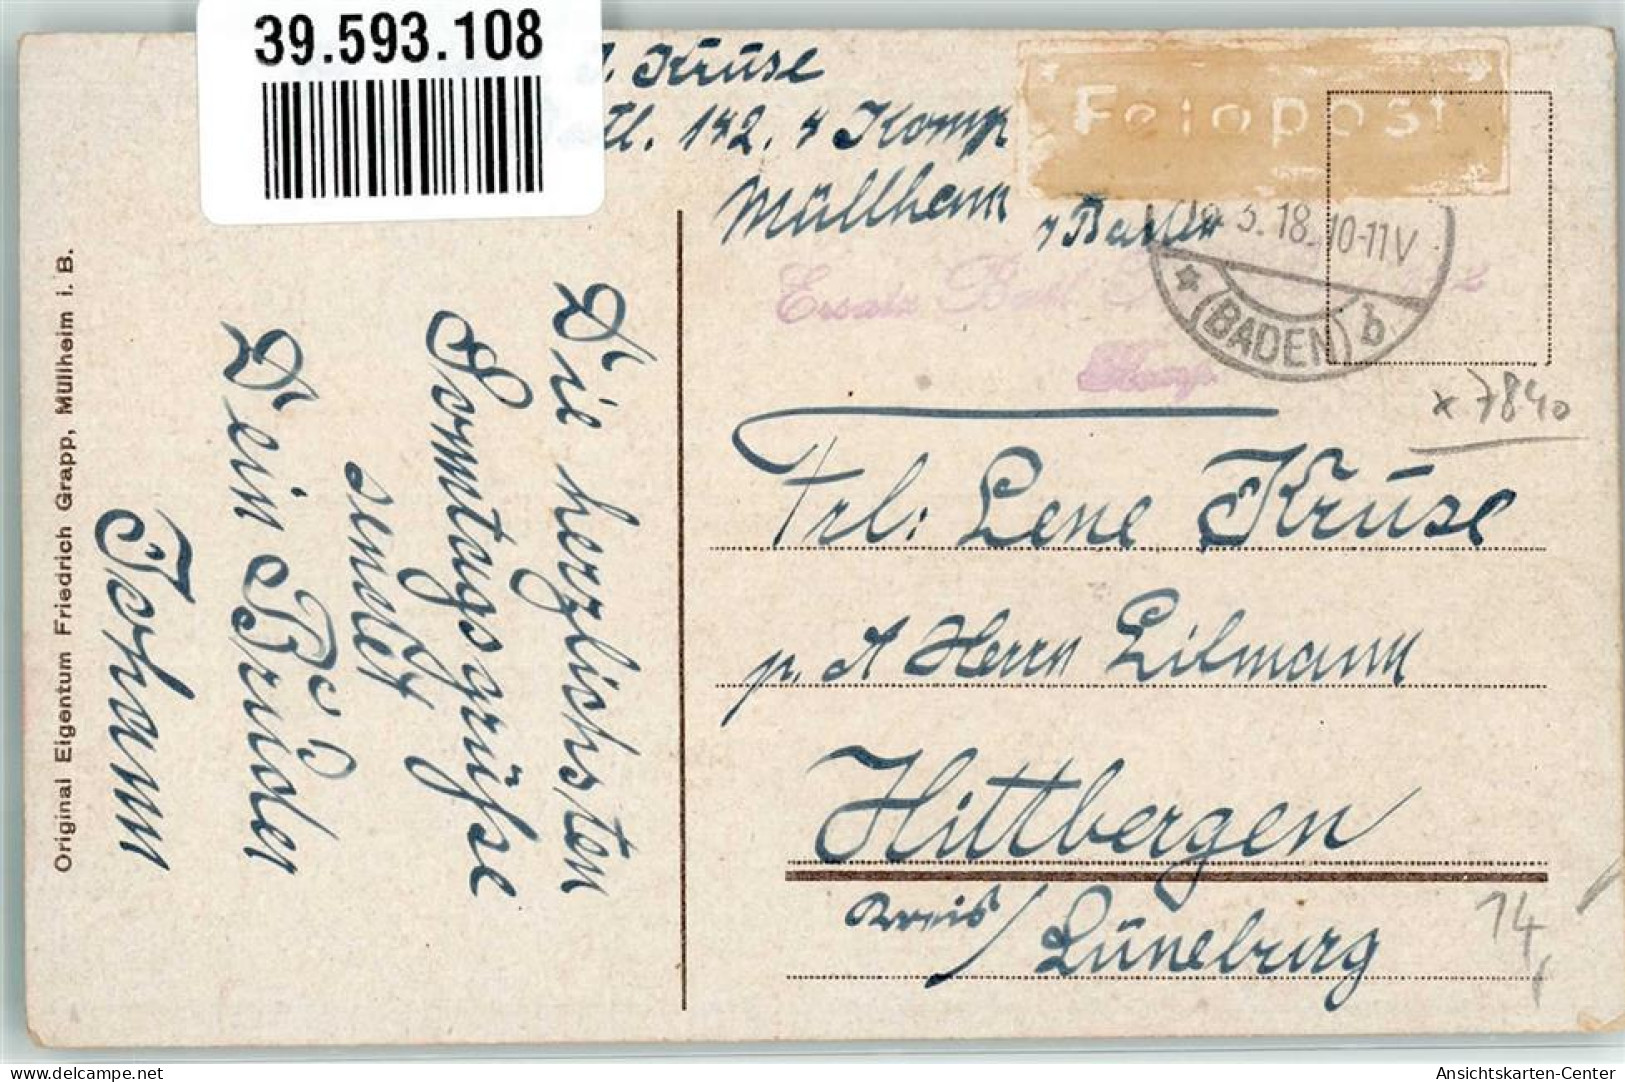 39.593.108
J. Kruse
Batl. 142. 4 Komp
Müllheim
i/Baden
Feldpost
3.18. 10-11V
(BADEN) b
Ersatz Batl
Komp.
x 7840
Frl: Lene Kruse
p. A Herrn Litmann
Hittbergen
Kreis/Lüneburg
14
Die herzlichsten
Sonntagsgrüße
sendet
Dein Bruder
Johann
Original Eigentum Friedrich Grapp, Müllheim i. B.
www.delcampe.net
Ansichtskarten-Center